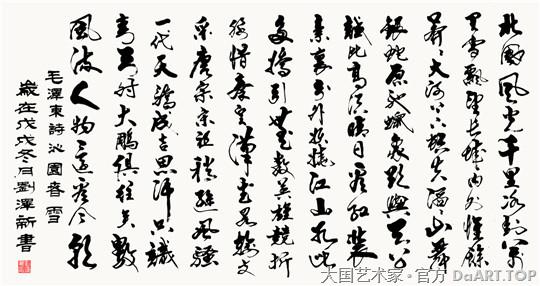 北國風光千里冰封萬
里雪飄望長城內外惟餘
莽莽大河上下頓失滔滔山舞
銀蛇原馳蠟象欲與天公
試比高須晴日看紅裝
素裹分外妖嬈江山如此
多嬌引無數英雄競折
腰惜秦皇漢武略輸文
采唐宗宋祖稍遜風騷
一代天驕成吉思汗只識
彎弓射大鵰俱往矣數
風流人物還看今朝
毛澤東詩沁園春雪
歲在戊戌冬月劉澤新書
大国艺术家·官方 DaART.TOP